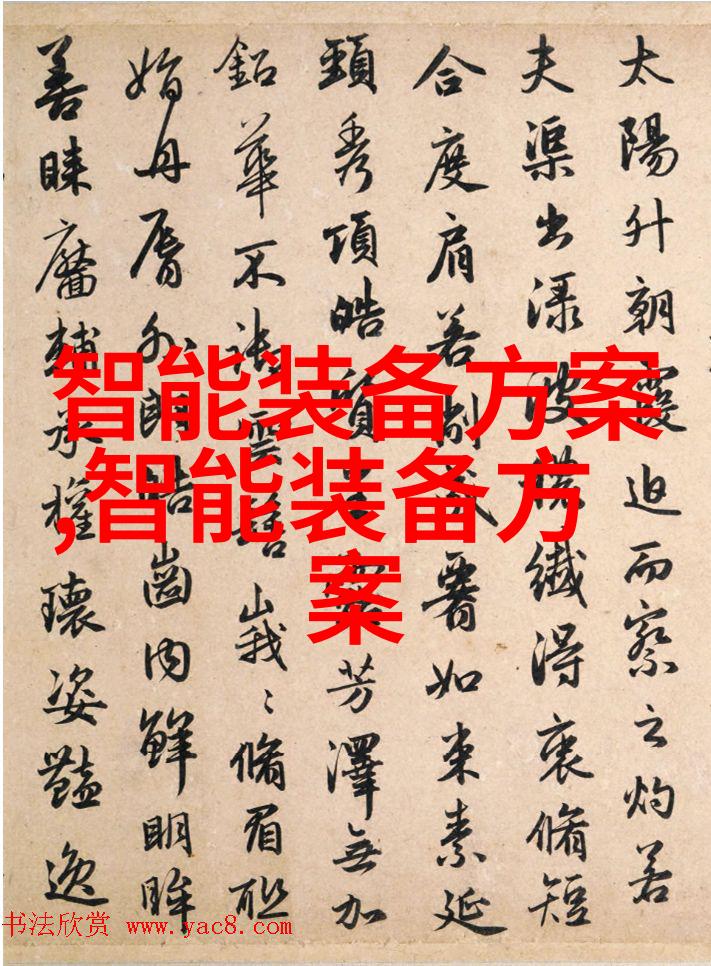 太陽升朝霞迫而察之灼若
夫渠出渌波襛纖得衷脩短
合度肩若削成如束素延
頸秀項皓質呈露芳澤無加
鉛華不御雲髻峩〻脩眉联
娟丹脣外朗皓齒内鮮明眸
善睞靨輔承權瓌姿豔逸
智能装备方案
,智能装备方
案
书法欣赏 www.yac8.com